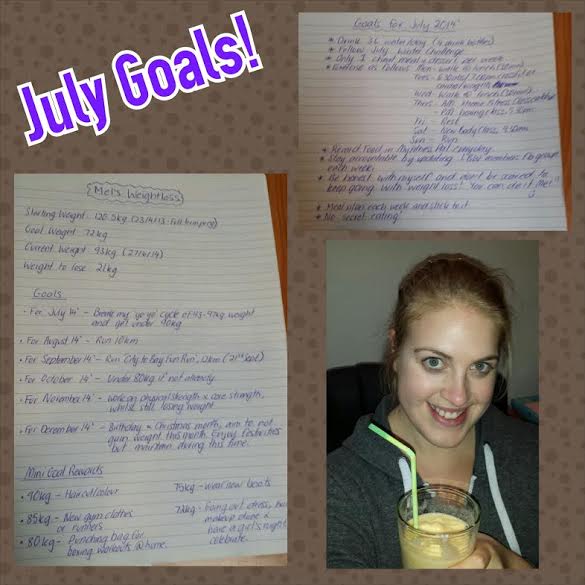 July Goals!
Goals for July 2014
* Drink 3L water/day (4 drink bottles)
* Follow July Winter Challenge
* Only 1 cheat meal + dessert per week
* Exercise as follows Mon - walk @ lunch (30min)
Wed - Walk @ lunch (30min)
Thurs - AM Home fitness
- PM boxing class 5.30pm
Fri - Rest
Sat - New body class 9.30am
Sun - Run
* Record food in Myfitness Pal everyday
* Stay accountable by updating
each week
* Be honest with myself and don't be scared to
keep going with weight loss! You can do it Mel!
* Meal plan each week and stick to it
* No 'secret eating'
Mel's Weightloss
Starting Weight 120.5kg (23/4/13 - Full term preg)
Goal Weight 72kg
Current Weight 93kg (27/6/14)
Weight to lose 21kg
Goals
• For July 14' - Break my 'yo yo' cycle of 93-97kg weight
and get under 90kg
• For August 14' - Run 10km
• For September 14' - Run 'City to Bay Fun Run', 12km (21st Sept)
• For October 14' - Under 80kg if not already
• For November 14' - work on physical strength & core strength,
whilst still losing weight
• For December 14' - Birthday & Christmas month, aim to not
gain weight this month. Enjoy festivities
but maintain during this time.
Mini Goal Rewards
• 90kg - Haircut/colour
• 85kg - New gym clothes
or runners
• 80kg - Punching bag for
boxing workouts @ home.
75kg - wear new boots
72kg - going out dress,
makeup done &
have a girl's night
celebrate.